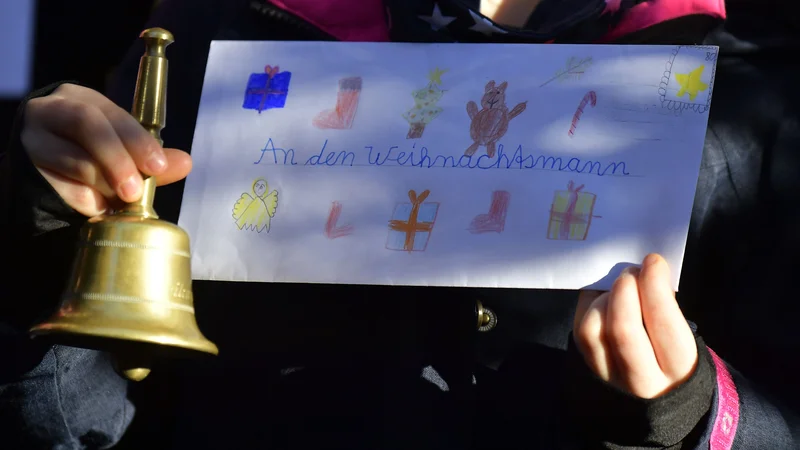 An den Weihnachtsmann